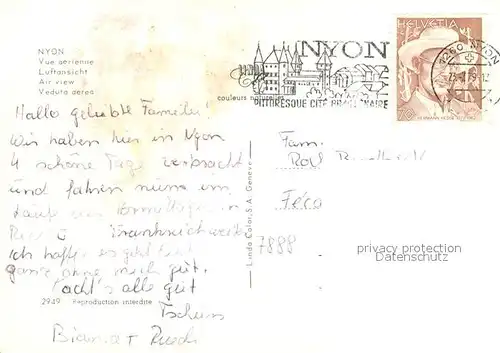 NYON
Vue aérienne
Luftansicht
Air view
Veduta aerea
couleurs naturelles
NYON
PITTORESQUE CITÉ
HELVETIA
HERMANN HESSE
1260 NYON
Hallo geliebte Familie!
Wir haben hier in Nyon
4 schöne Tage verbracht
und fahren nun im
Laufe des Vormittags in
Frankreich weiter
Ich hoffe es geht
ganz ohne mich gut.
Macht's alle gut
Tschüss
Bianca + Ruedi
Fam.
Rolf
7888
Linda Color S.A. Genève
privacy protection
Datenschutz
2949 Reproduction interdite